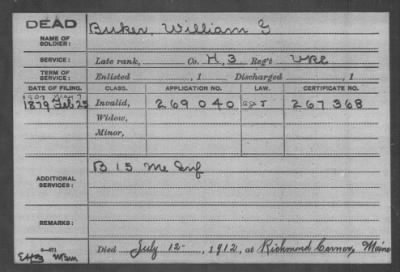 DEAD
NAME OF SOLDIER:
Buker, William G
SERVICE:
Late rank, Co. H, 3 Reg't VRC
TERM OF SERVICE:
Enlisted , 1 Discharged , 1
DATE OF FILING. CLASS. APPLICATION NO. LAW. CERTIFICATE NO.
1879 Feb 25 Invalid, 269040 267368
Widow,
Minor,
ADDITIONAL SERVICES:
B 15 Me Inf
REMARKS:
Died July 12, 1912, at Richmond Corner, Maine